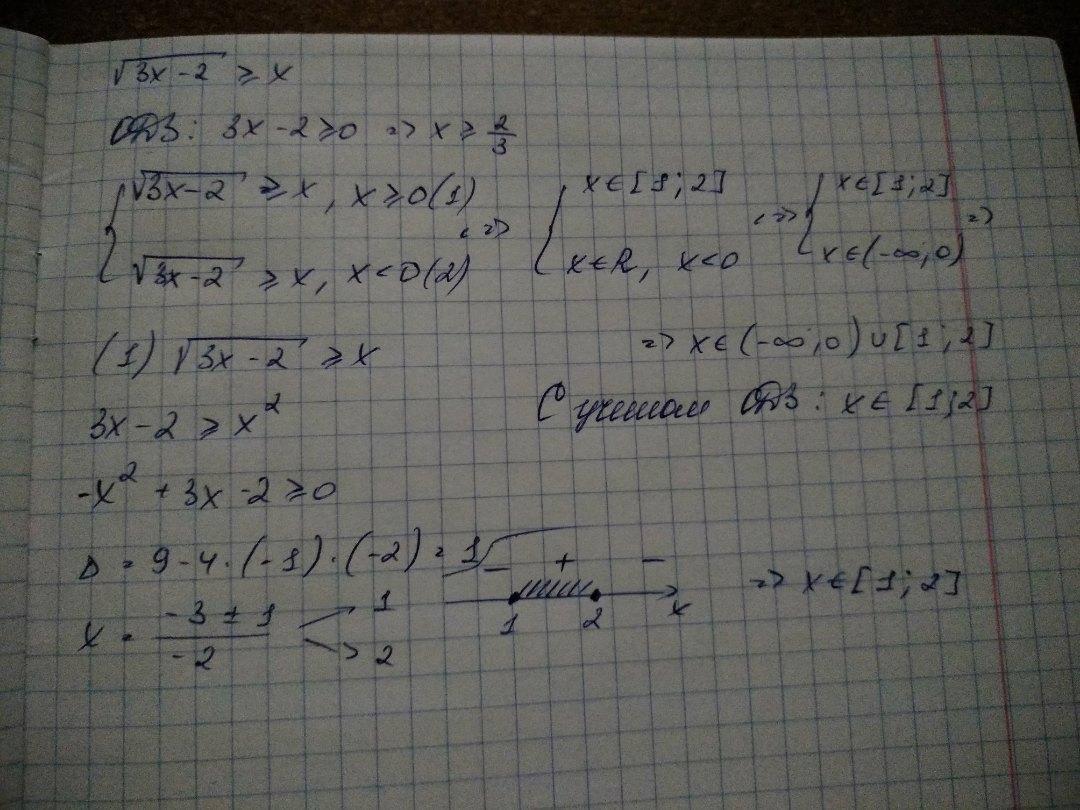 √(3x-2) ≥ x
ОДЗ: 3x-2≥0 => x ≥ 2/3
{ √(3x-2) ≥ x, x≥0(1) <=> { x∈[1;2] <=> { x∈[1;2] =>
√(3x-2) ≥ x, x<0(2) x∈R, x<0 x∈(-∞;0)
=> x∈(-∞;0)∪[1;2]
С учетом ОДЗ: x∈[1;2]
(1) √(3x-2) ≥ x
3x-2 ≥ x²
-x² + 3x -2 ≥ 0
D = 9-4·(-1)·(-2) = 1
x = (-3 ± 1)/(-2) 1
2
- + -
1 2 x
=> x∈[1;2]